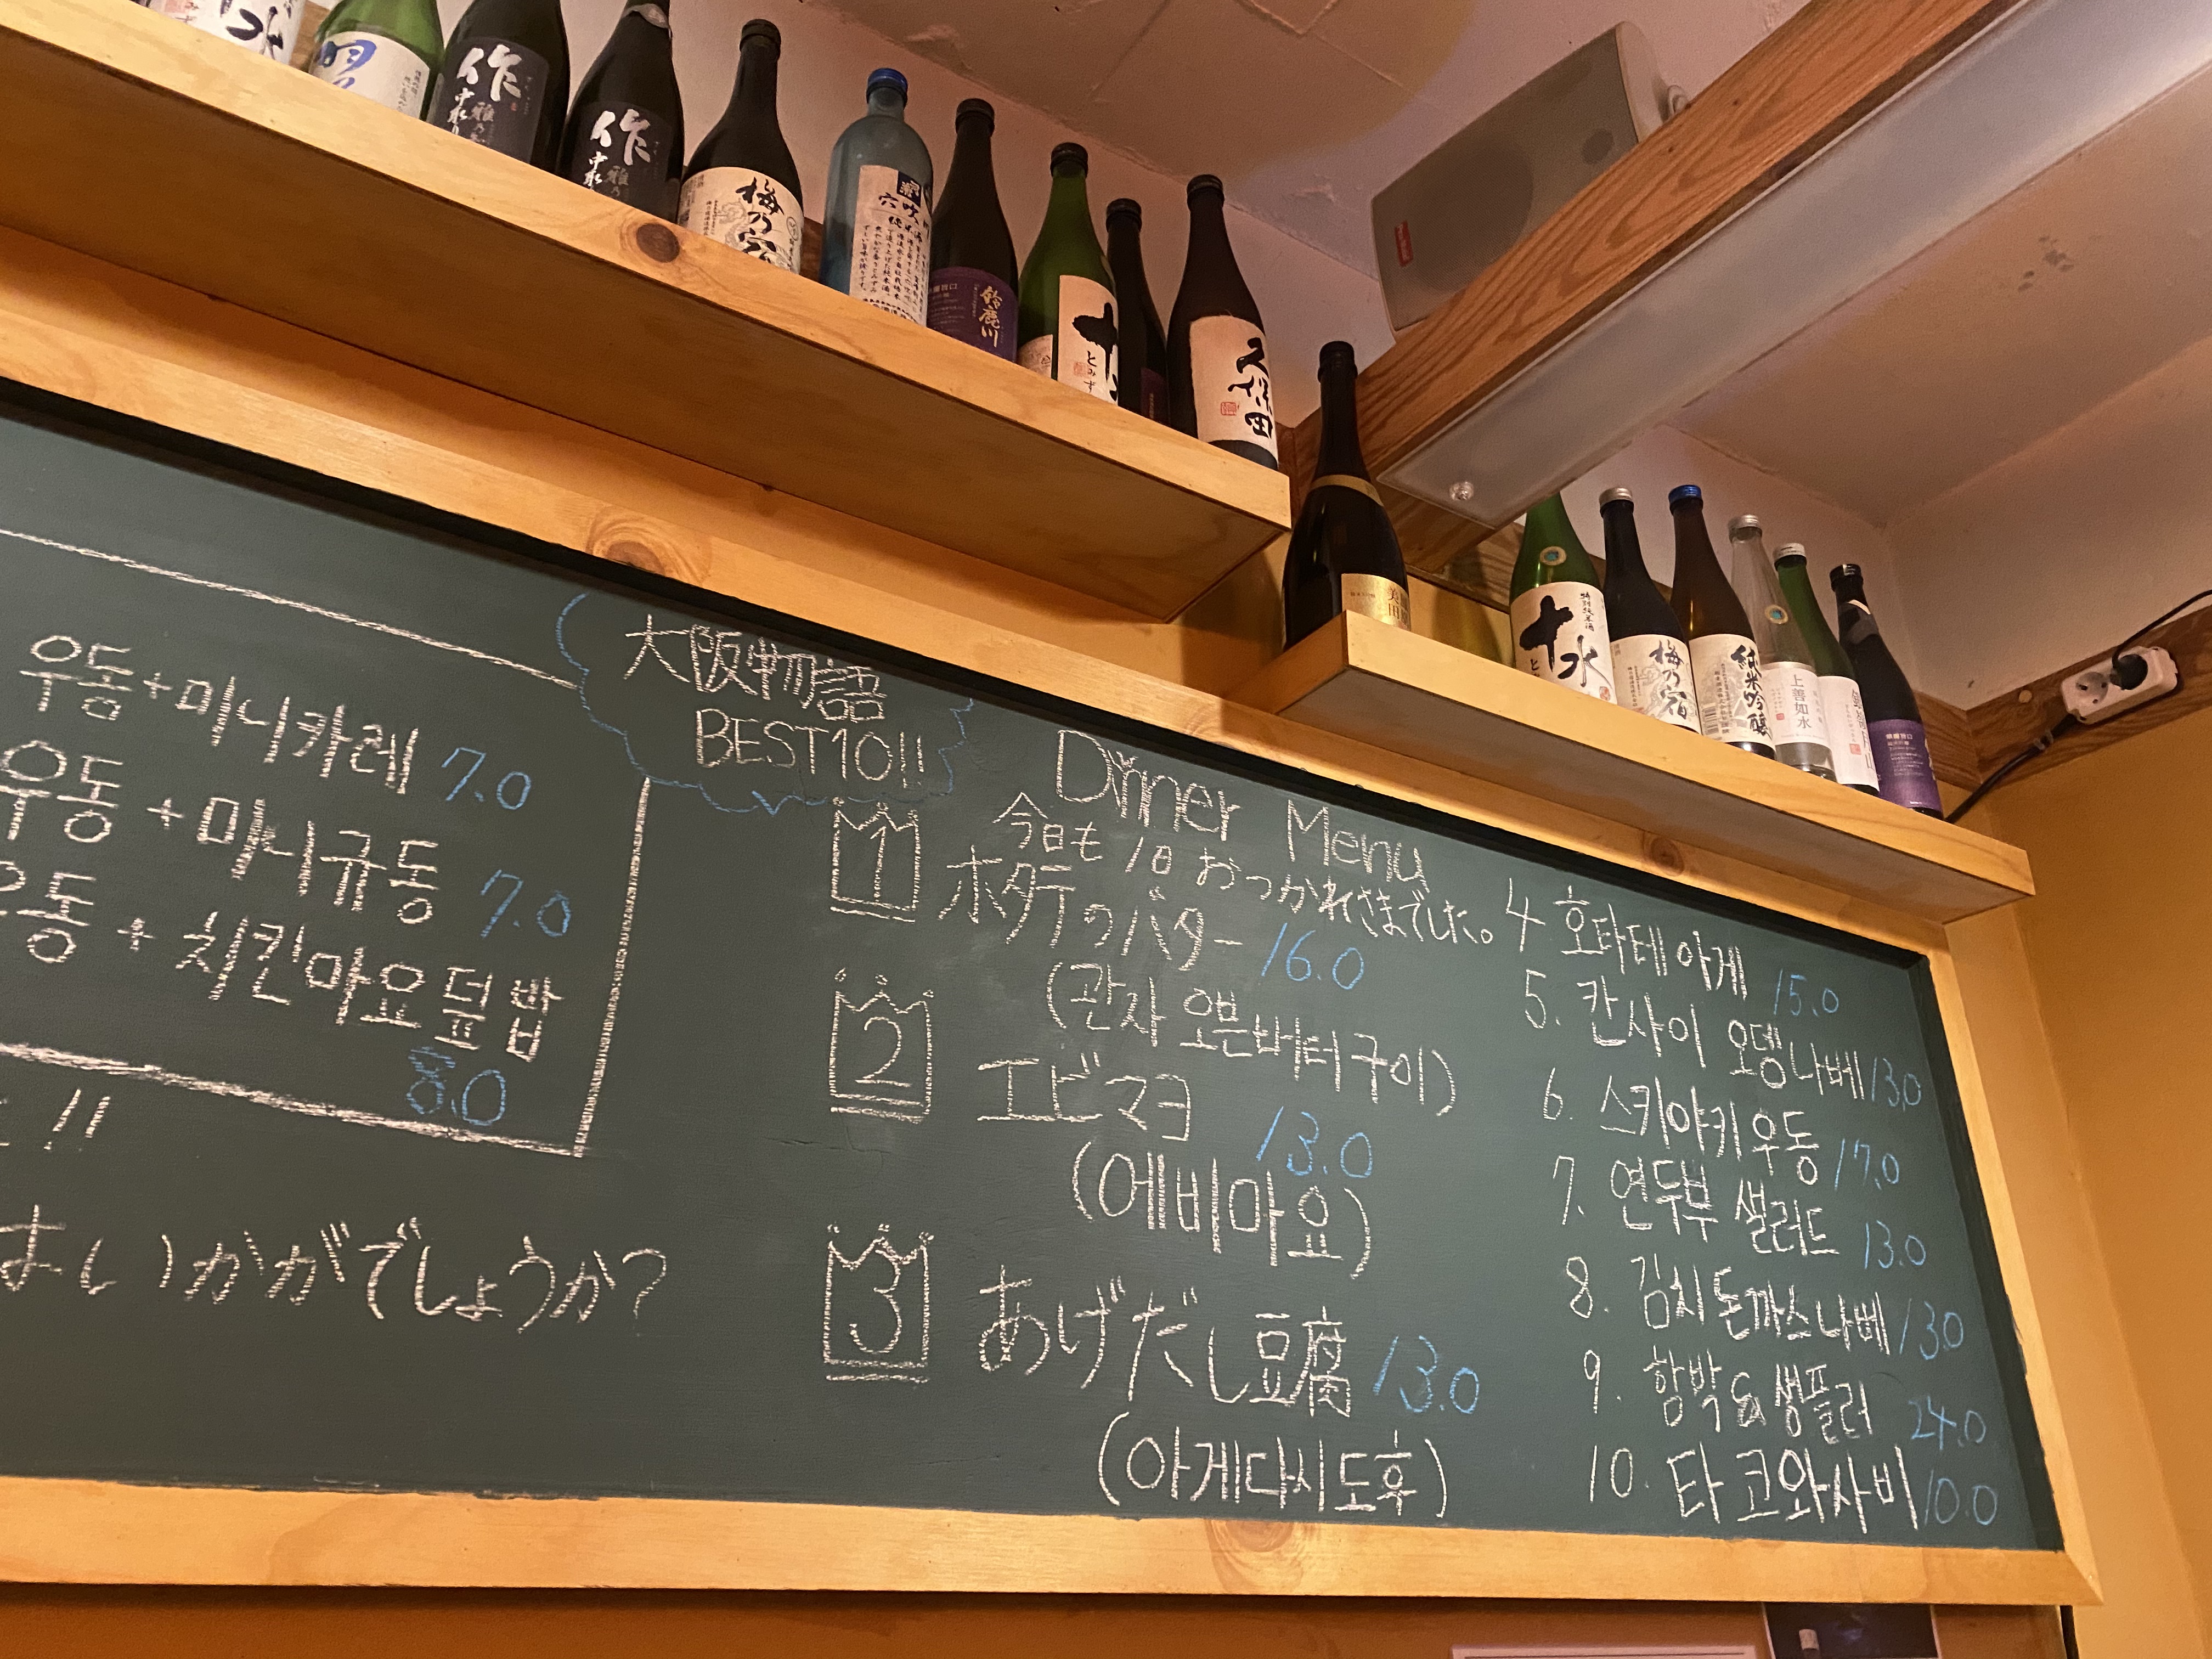 作
作
梅乃宿
鈴鹿川
十
とみず
久保田
十水
特別純米酒
梅乃宿
純米吟醸
上善如水
우동+미니카레 7.0
우동+미니규동 7.0
우동+치킨마요덮밥
8.0
!!
はいかがでしょうか?
大阪物語
BEST10!!
Dinner Menu
今日も1日おつかれさまでした。
1 ホタテのバター 16.0
(관자 오븐버터구이)
2 エビマヨ 13.0
(에비마요)
3 あげだし豆腐 13.0
(아게다시도후)
4 호타테아게 15.0
5. 칸사이 오뎅나베 13.0
6. 스키야키우동 17.0
7. 연두부 샐러드 13.0
8. 김치돈까스나베 13.0
9. 함박&쌤플러 24.0
10. 타코와사비 10.0